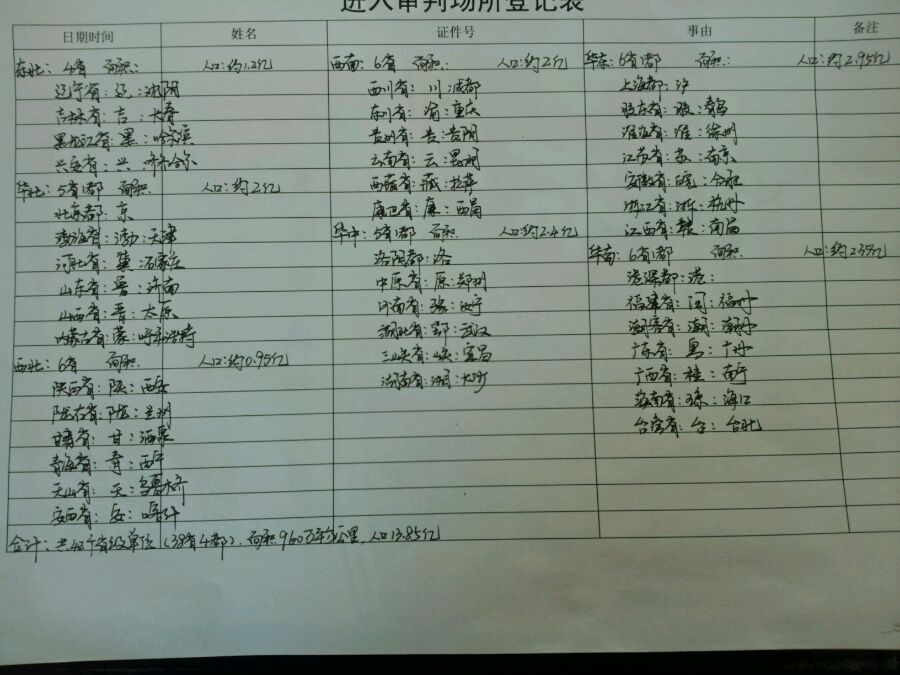 进入审判场所登记表
日期时间 姓名 证件号 事由 备注
东北：4省 面积： 人口：约1.2亿
辽宁省：辽：沈阳
吉林省：吉：长春
黑龙江省：黑：哈尔滨
兴安省：兴：齐齐哈尔
华北：5省1都 面积： 人口：约2亿
北京都：京
渤海省：渤：天津
河北省：冀：石家庄
山东省：鲁：济南
山西省：晋：太原
内蒙古省：蒙：呼和浩特
西北：6省 面积： 人口：约0.95亿
陕西省：陕：西安
陇右省：陇：兰州
甘肃省：甘：酒泉
青海省：青：西宁
天山省：天：乌鲁木齐
安西省：安：喀什
西南：6省 面积： 人口：约2亿
四川省：川：成都
东川省：渝：重庆
贵州省：贵：贵阳
云南省：云：昆明
西藏省：藏：拉萨
康巴省：康：西昌
华中：5省1都 面积： 人口：约2.4亿
洛阳都：洛
中原省：原：郑州
河南省：豫：汝宁
湖北省：鄂：武汉
三峡省：峡：宜昌
湖南省：湘：长沙
华东：6省1都 面积： 人口：约2.95亿
上海都：沪
胶东省：胶：青岛
淮海省：淮：徐州
江苏省：苏：南京
安徽省：皖：合肥
浙江省：浙：杭州
江西省：赣：南昌
华南：6省1都 面积： 人口：约2.35亿
港深都：港：
福建省：闽：福州
潮客省：潮：潮州
广东省：粤：广州
广西省：桂：南宁
海南省：琼：海口
台湾省：台：台北
合计：共42个省级单位（38省4都），面积960万平方公里，人口13.85亿